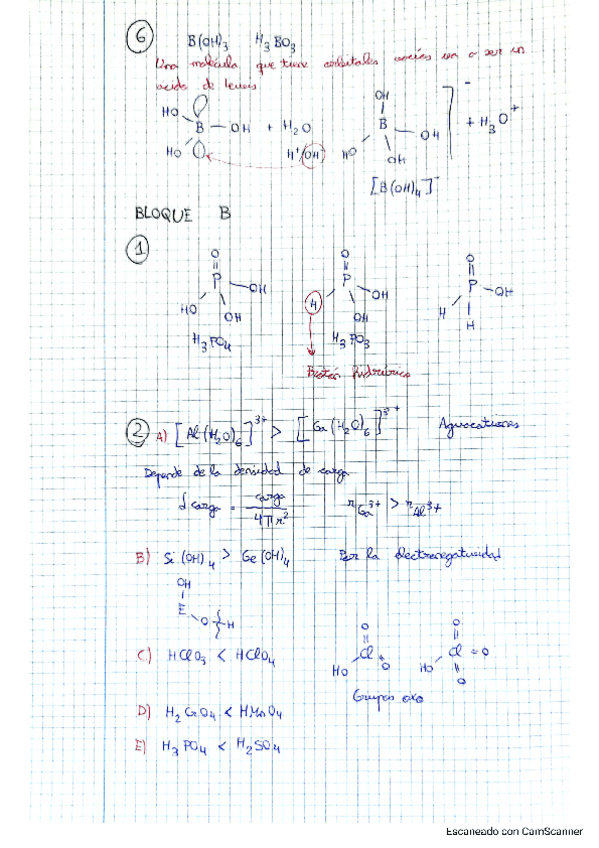 6 B(OH)3 H3BO3
Una molécula que tiene orbitales vacíos va a ser un
acido de lewis
HO
B — OH + H2O
HO
H+/OH
OH
B
OH
HO
OH
]- + H3O+
[B(OH)4]-
BLOQUE B
1
O
P
OH
HO
OH
H3PO4
O
P
H
OH
OH
H3PO3
O
P
OH
H
H
2 A) [Al(H2O)6]3+ > [Ga(H2O)6]3+ Aquocationes
Depende de la densidad de carga
d carga = carga / 4πr2 rGa3+ > rAl3+
B) Si(OH)4 > Ge(OH)4 Por la electronegatividad
OH
E
O
H
C) HClO3 < HClO4
O
Cl
HO
O
O
HO
Cl = O
O
Grupos oxo
D) H2CrO4 < HMnO4
E) H3PO4 < H2SO4
Escaneado con CamScanner